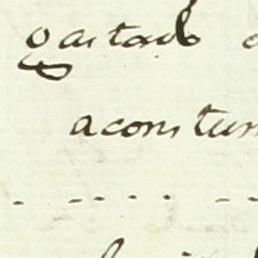 gastado
acostum
. - - - - - -